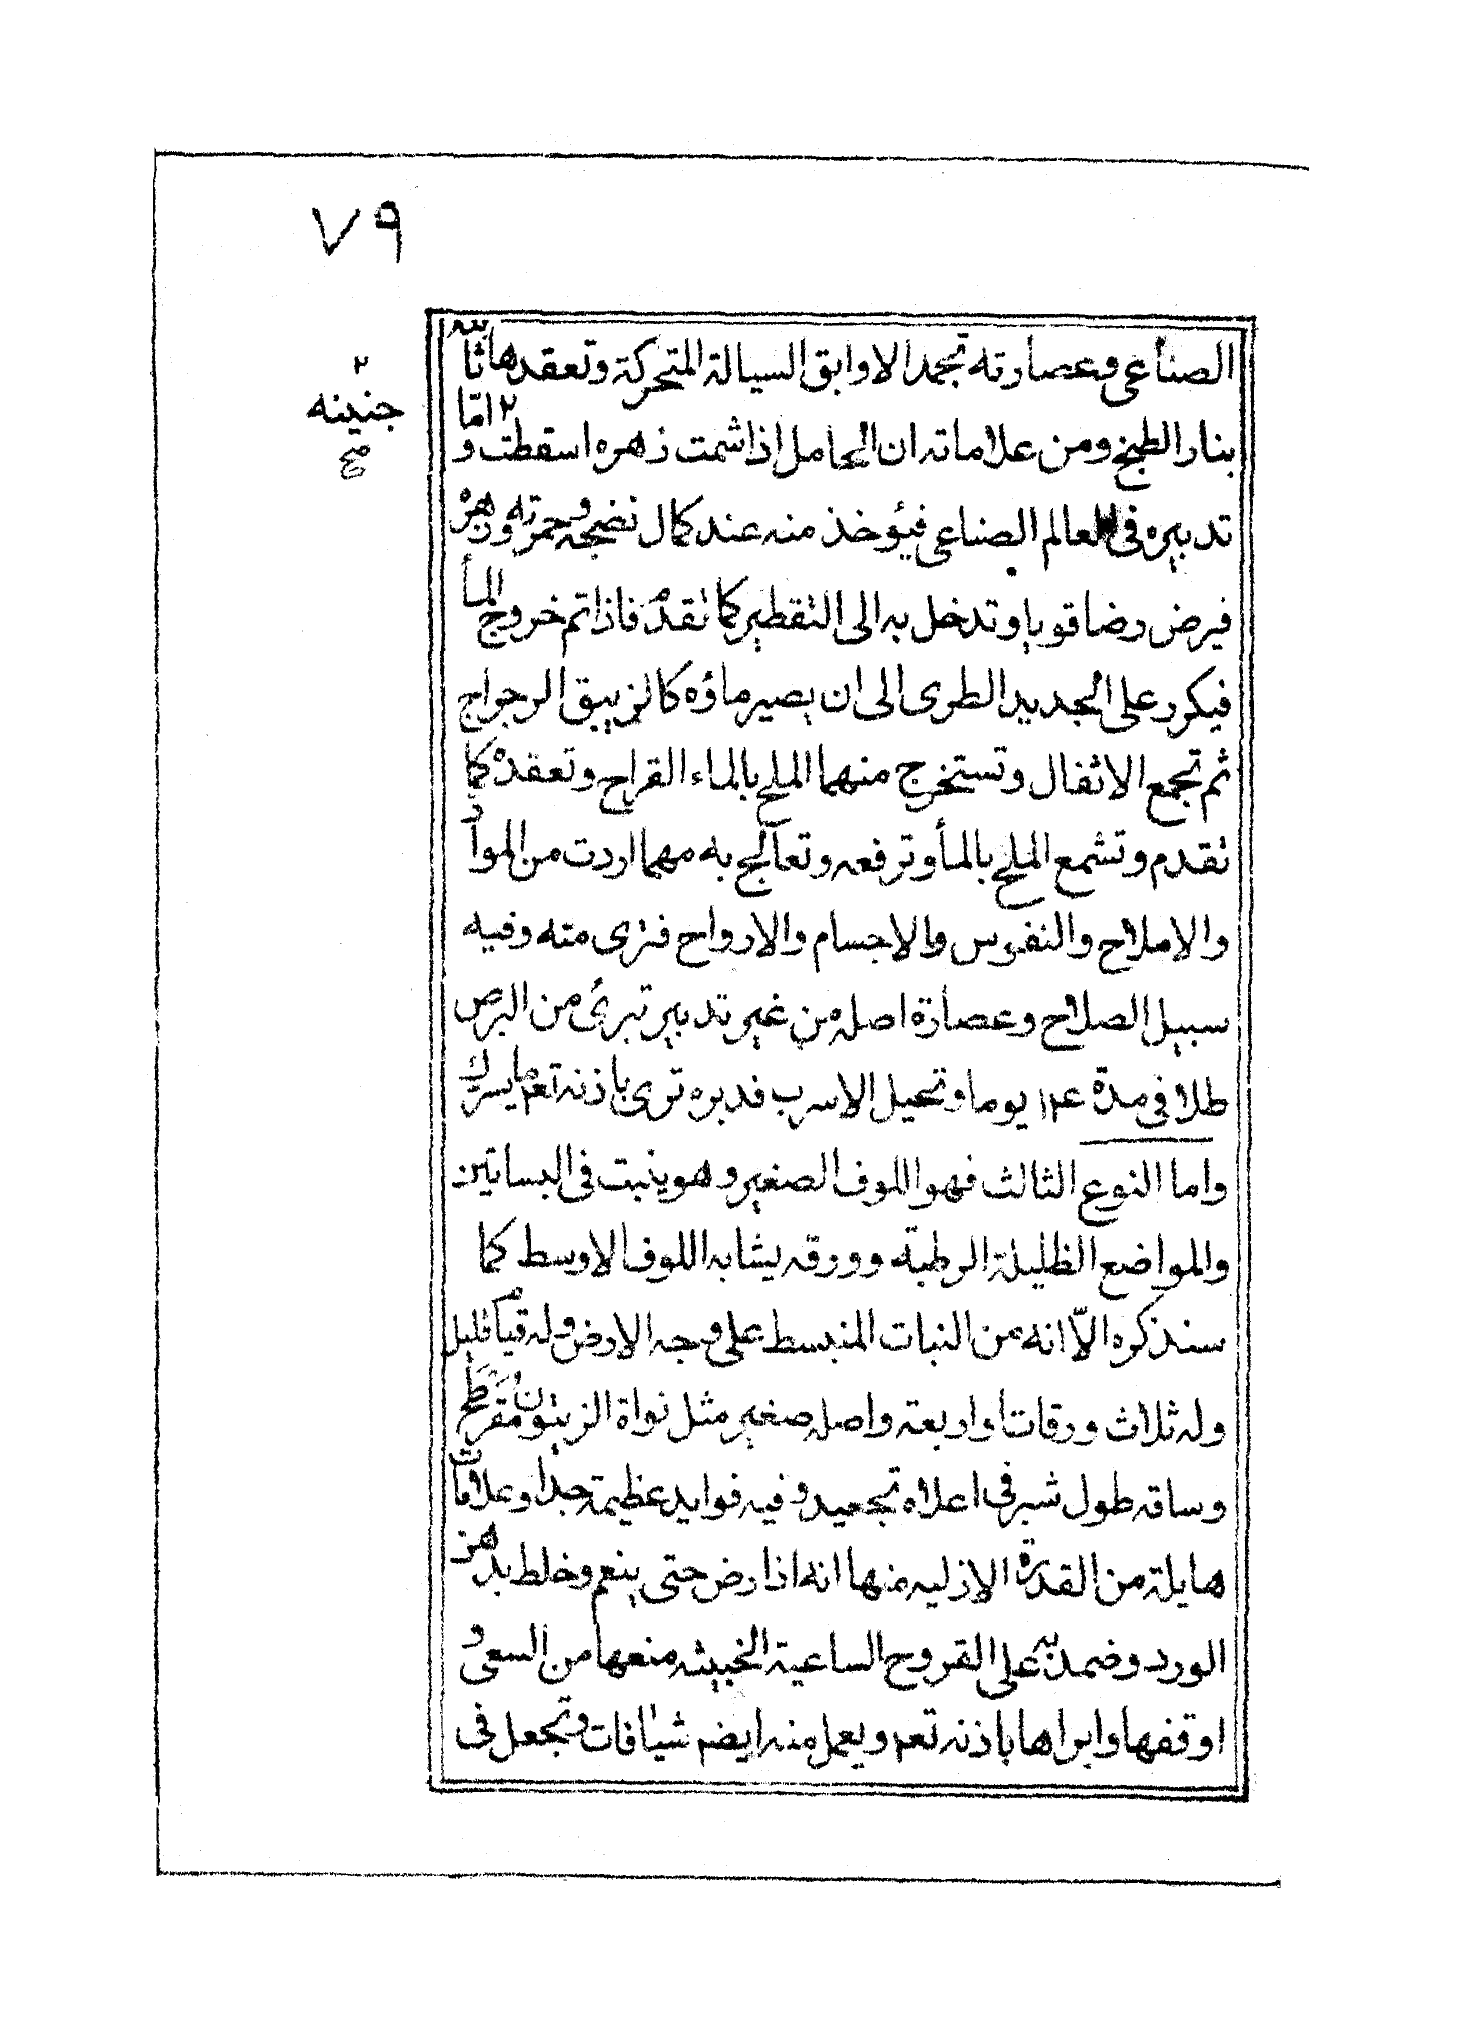 ٧٩
الصناعي وعصارته تجمد الاوابق السيالة المتحركة وتعقدها ثابتة
بنار الطبخ ومن علاماته ان الحامل اذا شمت زهره اسقطت ٢ و امّا
٢ جنينه صح
تدبيره في العالم الصناعي فيؤخذ منه عند كمال نضجه وحمرته وزهره
فيرض رضا قويا وتدخل به الى التقطير كما تقدم فاذا تم خروج المأ
فيكرر على الجديد الطرى الى ان يصير ماؤه كالزيبق الرجراج
ثم تجمع الاثفال وتستخرج منهما الملح بالماء القراح وتعقده كما
تقدم وتشمع الملح بالمأ وترفعه وتعالج به مهما اردت من المواد
والاملاح والنفوس والاجسام والارواح فترى منه وفيه
سبيل الصلاح وعصارة اصله من غير تدبير تبرئ من البرص
طلا في مدة ١٢٤ يوما وتحيل الاسرب فدبره ترى باذنه تعم ما يسرك
واما النوع الثالث فهو اللوف الصغير وهو ينبت في البساتين
والمواضع الظليلة الرطبة وورقه يشابه اللوف الاوسط كما
سنذكره الاّ انه من النبات المنبسط على وجه الارض وله قيام قليل
وله ثلاث ورقات أو اربعة واصله صغير مثل نواة الزيتون مفرطح
وساقه طول شبر في اعلاه تجعيد وفيه فوايد عظيمة جدا وعلامات
هايلة من القدرة الازليه منها انه اذا رض حتى ينعم وخلط بدهن
الورد وضمد به على القروح الساعية الخبيثه منعها من السعى و
اوقفها وابراها باذنه تعم ويعمل منه ايضم شيافات وتجعل في